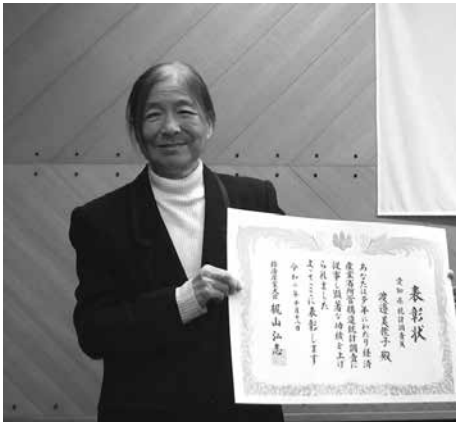 表彰状
愛知県統計調査員
渡邊美枝子殿
あなたは多年にわたり経済
産業省所管構造統計調査に
従事し顕著な功績を上げ
られました
よってここに表彰します
令和二年十月十八日
経済産業大臣 梶山弘志